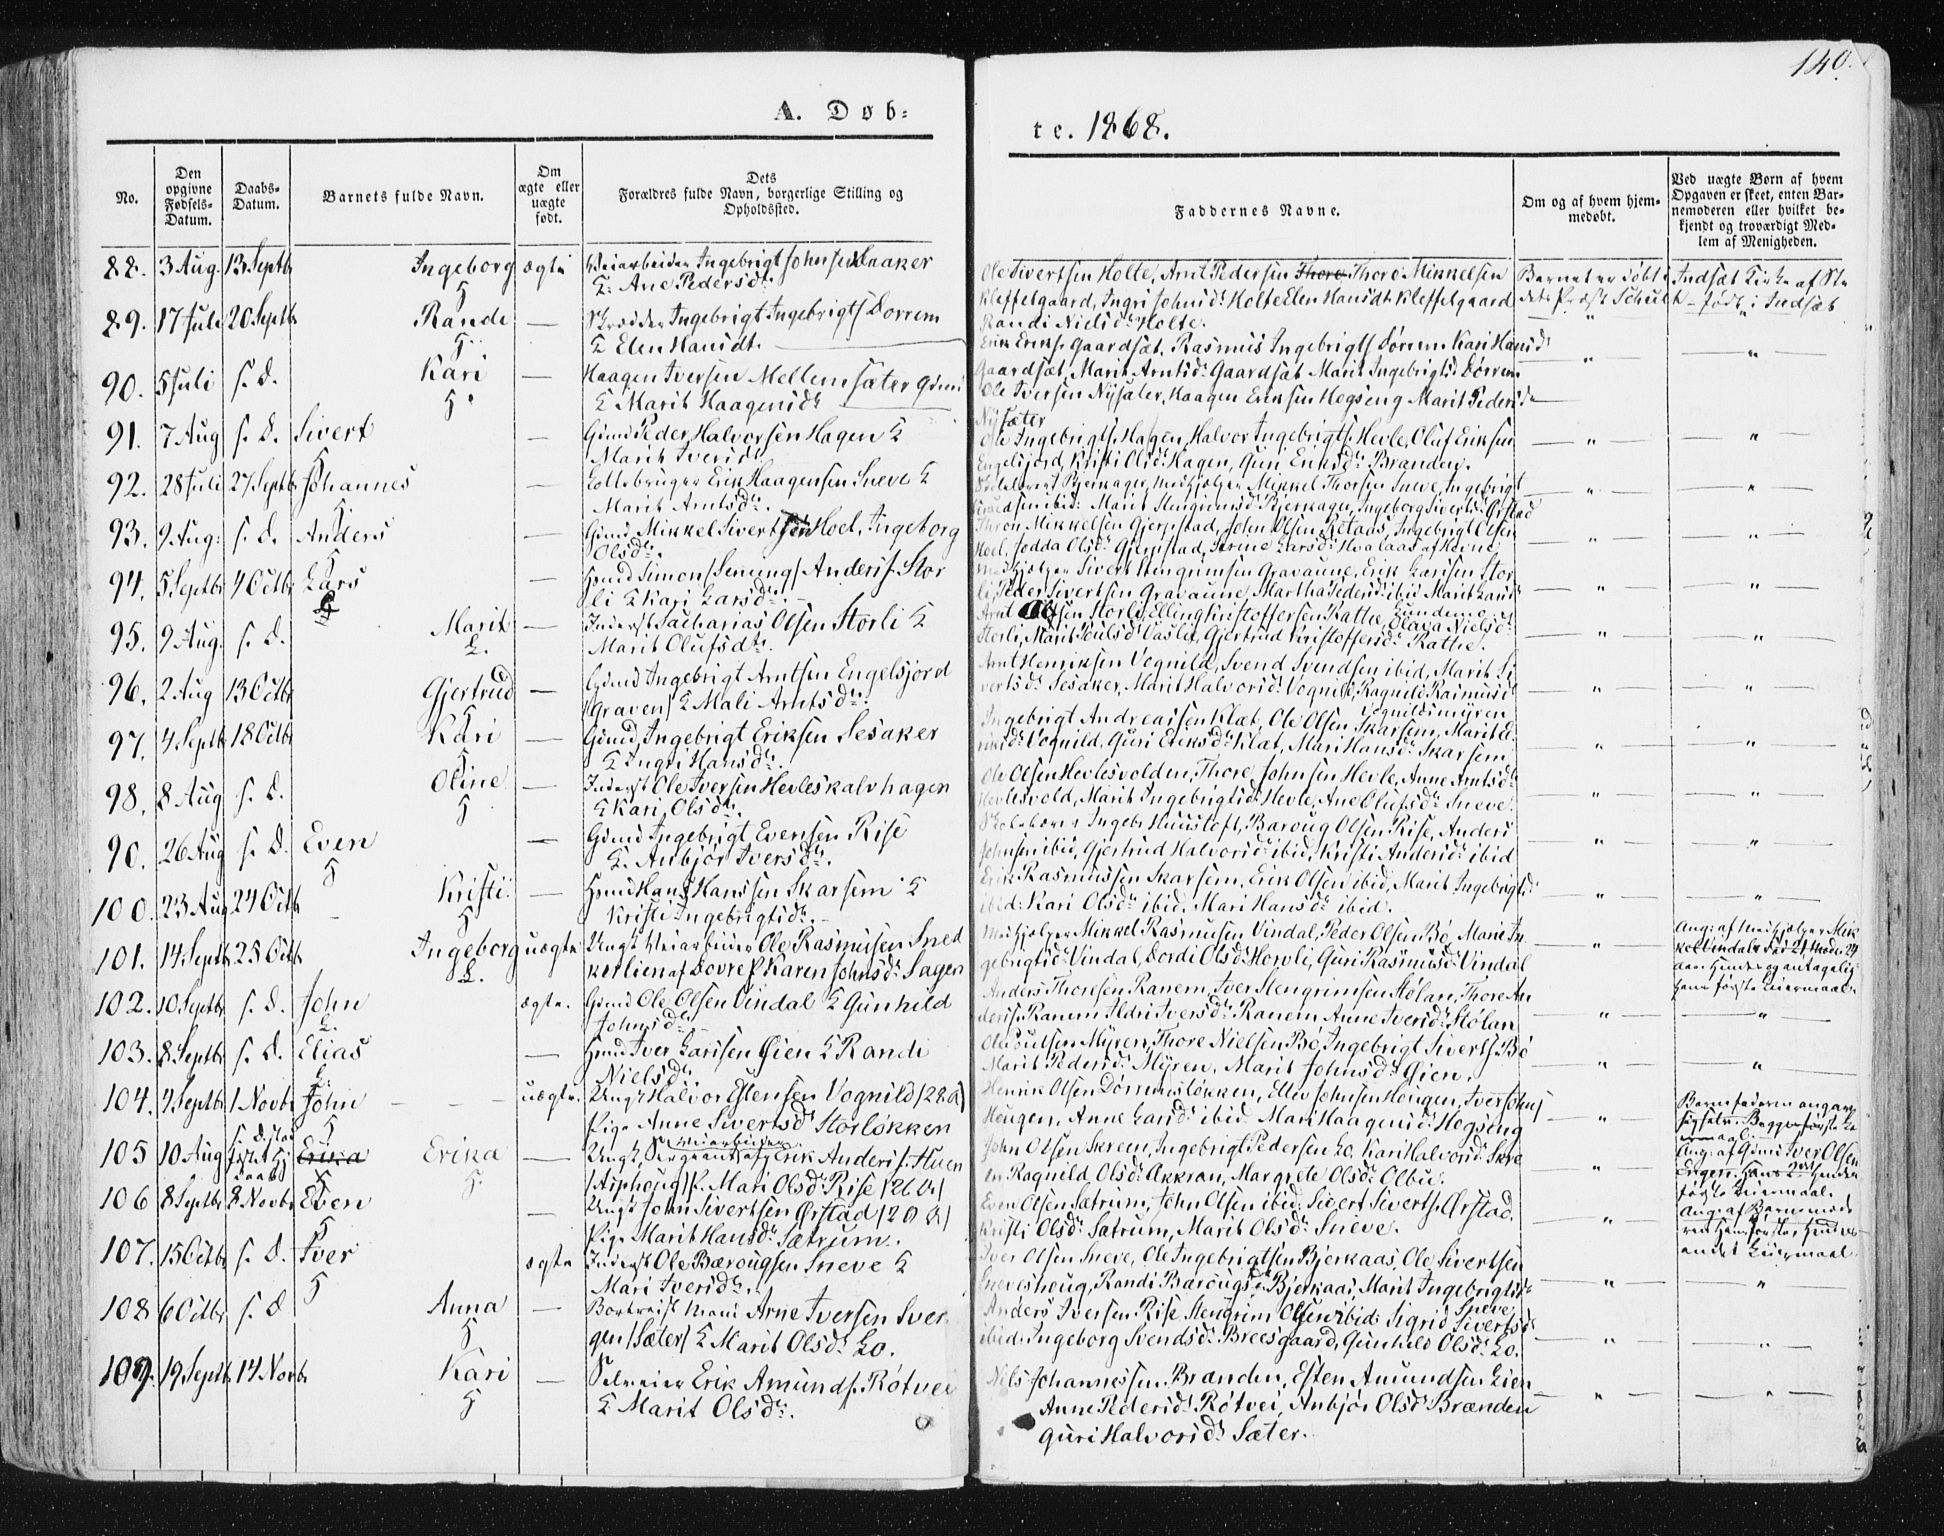 140.
A. Døb-
te. 1868.
No.
Den opgivne Fødsels-Datum.
Daabs-Datum.
Barnets fulde Navn.
Om ægte eller uægte født.
Dets Forældres fulde Navn, borgerlige Stilling og Opholdssted.
Faddernes Navne.
Om og af hvem hjem-medøbt.
Ved uægte Børn af hvem Opgaven er skeet, enten Bar-nemoderen eller hvilket be-kjendt og troværdigt Med-lem af Menigheden.
88. 3 Aug. 13 Septbr Ingeborg ægte Veiarbeider Ingebrigt Johnsen
& Ane Pedersdt.
Ole Sivertsen Holte, Arnt Pedersen Thore Mikkelsen
Kleffelgaard, Ingri Johnsdt Holte Elen Hansdt Kleffelgaard
Randi Nielsdt Holte.
Barnet er døbt i Indsæt Kirke af
Schult født i Indsæt
89. 17 Juli 20 Septbr Rande — Ingebrigt Ingebrigts. Dorrem
& Elen Hansdt.
Erik Eriks. Gaardsæt, Rasmus Ingebrigts. Dørrem Kari Hansdt
Gaardsæt, Marit Arntsdt Gaardsæt Marit Ingebrigtsdt Dørrem
90. 5 Juli s. D. Kari — Haagen Iversen Mellemsæter Gdmd
& Marit Haagensdt
Ole Iversen Nysæter, Haagen Eriksen Hegseng Marit Pedersdt
Nysæter
91. 7 Aug s. D. Sivert — Gdmd Peder Halvorsen Hagen &
Marit Iversdt
Ole Ingebrigts. Hagen, Halvor Ingebrigts. Hevle, Oluf Eriksen
Engelsjord, Kristi Olsdt Hagen, Guri Eriksdt Brænden.
92. 28 Juli 27 Septbr Johannes — Erik Haagensen Sneve &
Marit Arntsdt.
Bjerkager, Medhjælper Mikkel Thorsen Sneve, Ingebrigt
ibid: Marit Stengrimsdt Bjerkager, Ingeborg Sivertsdt Ørstad
93. 9 Aug: s. D. Anders — Gdmd Mikkel Sivertsen Hoel, Ingeborg
Olsdt.
Thron Mikkelsen Gjerpstad, John Olsen Ingebrigt Olsen
Hoel, Jodda Olsdt Gjerpstad,
94. 5 Septbr 4 Octbr Lars — Hsmd Simon Anders. Stor
li & Kari Larsdt.
Medhjælper Sivert Stengrimsen Gravaune, Erik Larsen Stor
li, Peder Sivertsen Gravaune, Martha Pedersdt ibid Marit Larsdt
95. 9 Aug. s. D. Marit — Inderst Sacharias Olsen Storli &
Marit Olufsdt.
Arnt Olsen Storli, Elling Kristoffersen Rathe, Nielsdt
Storli, Marit Poulsdt Vasli, Gjertrud Kristoffersdt Rathe.
96. 2 Aug 13 Octbr Gjertrud — Gdmd Ingebrigt Arntsen Engelsjord
(Graven) & Mali Arntsdt.
Arnt Henriksen Vognild, Svend Svendsen ibid, Marit Si
vertsdt Sesaker, Marit Halvorsdt Vognild, Ragnild Rasmusdt
Vognildsmyren
97. 4 Septbr 18 Octbr Kari — Gdmd Ingebrigt Eriksen Sesaker
& Ingri Hansdt.
Ingebrigt Andreassen Klæt, Ole Olsen Skarsem, Marit E
riksdt Vognild, Guri Eriksdt Klæt, Mari Hansdt Skarsem
98. 8 Aug s. D. Oline — Inderst Ole Iversen Hevleskalvhagen
& Kari Olsdt.
Ole Olsen Hevlesvolden, Thore Johnsen Hevle, Anne Arntsdt
Hevlesvold, Marit Ingebrigtsdt Hevle, Ane Olufsdt Sneve.
90. 26 Aug s. D. Even — Gdmd Ingebrigt Evensen Rise
& Anbjør Iversdt.
Ingebr. Baroug Olsen Rise, Anders
Johnsen ibid, Gjertrud Halvorsdt ibid, Kristi Andersdt ibid
100. 23 Aug 24 Octb Kristi — Hsmd Hans Hanssen Skarsem &
Kristi Ingebrigtsdt.
Erik Rasmussen Skarsem, Erik Olsen ibid, Marit Ingebrigtsdt
ibid: Kari Olsdt ibid, Mari Hansdt ibid.
101. 14 Septb 25 Octb Ingeborg uægte Ungk Veiarbeider Ole Rasmusen Sned
kerlien af Dovre P. Karen Johnsdt Sagen
Medhjælper Mikkel Rasmusen Vindal, Peder Olsen Bø, Marit In
gebrigtsdt Vindal, Dordi Olsdt Horvli, Guri Rasmusdt Vindal
Ang: af Medhjælper Mik
kel Vindal
102. 10 Septbr s. D. John ægte. Gdmd Ole Olsen Vindal & Gunhild
Johnsdt
Anders Thoresen Ranem, Iver Stengrimsen Stølan, Thore An
ders. Ranem Ildri Iversdt Ranem Anne Iversdt Stølan
103. 8 Septbr s. D. Elias — Hsmd Iver Larssen Øien & Randi
Nielsdt.
Ole Poulsen Myren, Thore Nielsen Bø, Ingebrigt Siverts. Bø
Marit Pedersdt Myren, Marit Johnsdt Øien.
104. 9 Septbr 1 Novbr John uægte. Ungk Halvor Estensen Vognild (28 A)
Pige Anne Sivertsdt Storløkken
Henrik Olsen Dørremsløkken, Ellev Johnsen Hougen, Iver Johns.
Hougen, Anne Larsdt ibid. Mari Haagensdt Hegseng
Barnefaderen angav
sig selv. Begges første Lei
ermaal.
105 10 Aug Erika Erika Ungk, Veiarbeider Erik Anders. Huen
P. Mari Olsdt Rise (26 A)
John Olsen Skreen, Ingebrigt Pedersen Lo. Kari Halvorsdt Skre
en Ragnild Olsdt Akkran, Margrete Olsdt Olbu.
Ang. af Gdmd Iver Olsen
første Leiermaal.
106 8 Septbr 8 Novbr Even — Ungk John Sivertsen Ørstad (20 A)
Pige Marit Hansdt Sætrum.
Even Olsen Sætrum, John Olsen ibid: Sivert Siverts. Ørstad.
Kristi Olsdt Sætrum, Marit Olsdt Sneve.
Ang. af Barnemode
ren
andet Leiermaal
107. 15 Octbr s. D. Iver ægte Inderst Ole Bærougsen Sneve &
Mari Iversdt.
Iver Olsen Sneve, Ole Ingebrigtsen Bjerkaas, Ole Sivertsen
Sneveshoug, Randi Barougsdt Bjerkaas, Marit Ingebrigtsdt
Sneve
108 6 Octbr s. D Anna — Bortreist Mand Arne Iversen Sver
gen (Sæter) & Marit Olsdt Lo.
Anders Iversen Rise Stengrim Olsen ibid: Sigrid Sivertsdt
ibid: Ingeborg Svendsdt Breesgaard, Gunhild Olsdt Lo.
109. 19 Septb 14 Novb Kari — Selveier Erik Amunds. Røtvei
& Marit Olsdt.
Nils Johannessen Brænden, Esten Amundsen Lien
Anne Pedersdt Røtvei, Anbjør Olsdt Brænden
Guri Halvorsdt Sæter.